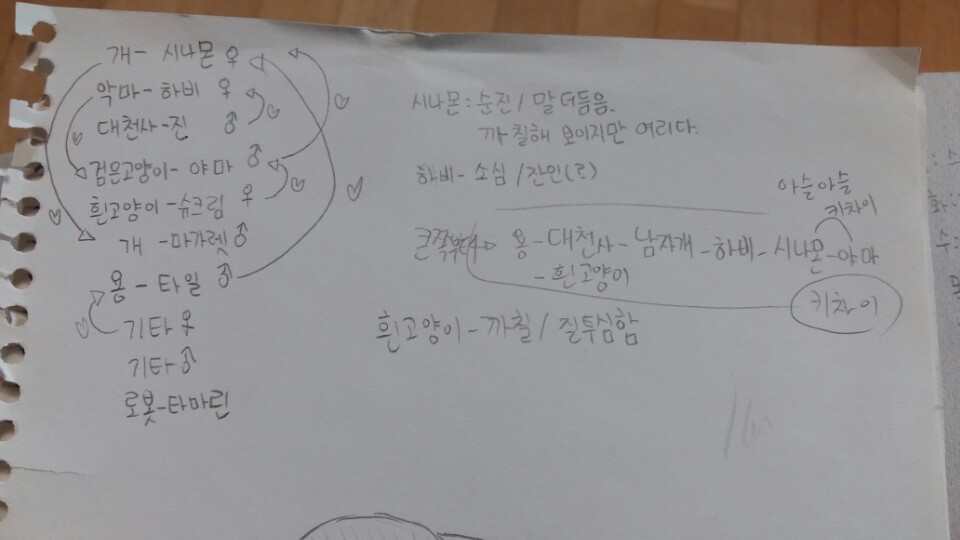 개 - 시나몬 ♀
악마 - 하비 ♀
대천사 - 진 ♂
검은고양이 - 야마 ♂
흰고양이 - 슈크림 ♀
개 - 마가렛 ♂
용 - 타일 ♂
기타 ♀
기타 ♂
로봇 - 타마린
시나몬 : 순진 / 말더듬음.
까칠해 보이지만 여리다.
하비 - 소심 / 잔인(?)
아슬아슬
키차이
큰쪽부터 → 용 - 대천사 - 남자개 - 하비 - 시나몬 - 야마
- 흰고양이
키차이
흰고양이 - 까칠 / 질투심함